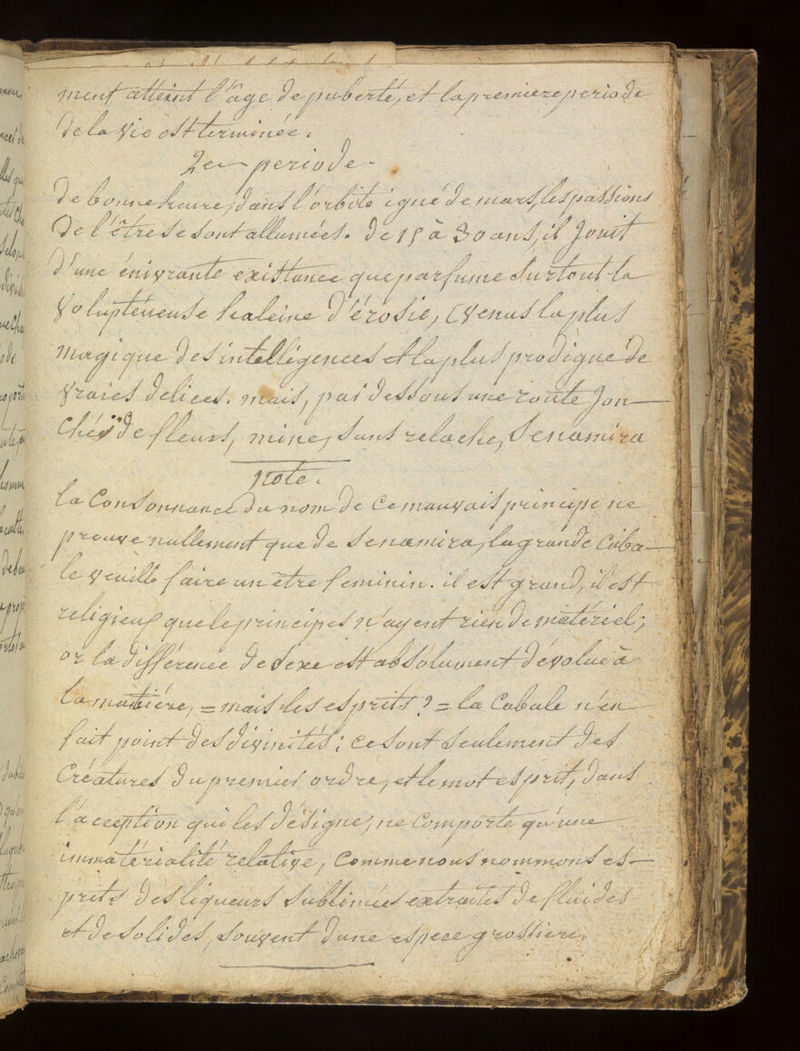 ment atteint l'age de puberté, et la premiere periode
de la vie est terminée.
2em periode.
De bonne heure, dans l'orbite igné de mars, les passions
de l'être se sont allumées. de 15 à 30 ans, il Jouit
d'une énivrante existance que parfume surtout la
voluptéueuse haleine d'érosie, (venus la plus
magique des intelligences et la plus prodigue de
vraies delices. mais, par dessous une route Jon-
chés de fleurs, mine, sans relache, senamira
Note.
la Consonnance du nom de ce mauvais principe ne
prouve nullement que de senamira, la grande Caba-
le veuille faire un être feminin. il est grand, il est
religieux que les principes n'ayent rien de matériel;
or la différence de sexe est absolument dévolue à
la matiére, = mais les esprits ? = la Cabale n'en
fait point des divinités ; ce sont seulement des
Créatures du premier ordre, et le mot esprit, dans
l'acception qui les désigne, ne Comporte qu'une
immatérialité relative, Comme nous nommons es-
prits des liqueurs sublimées extraites de fluides
et de solides, souvent d'une espece grossiere.